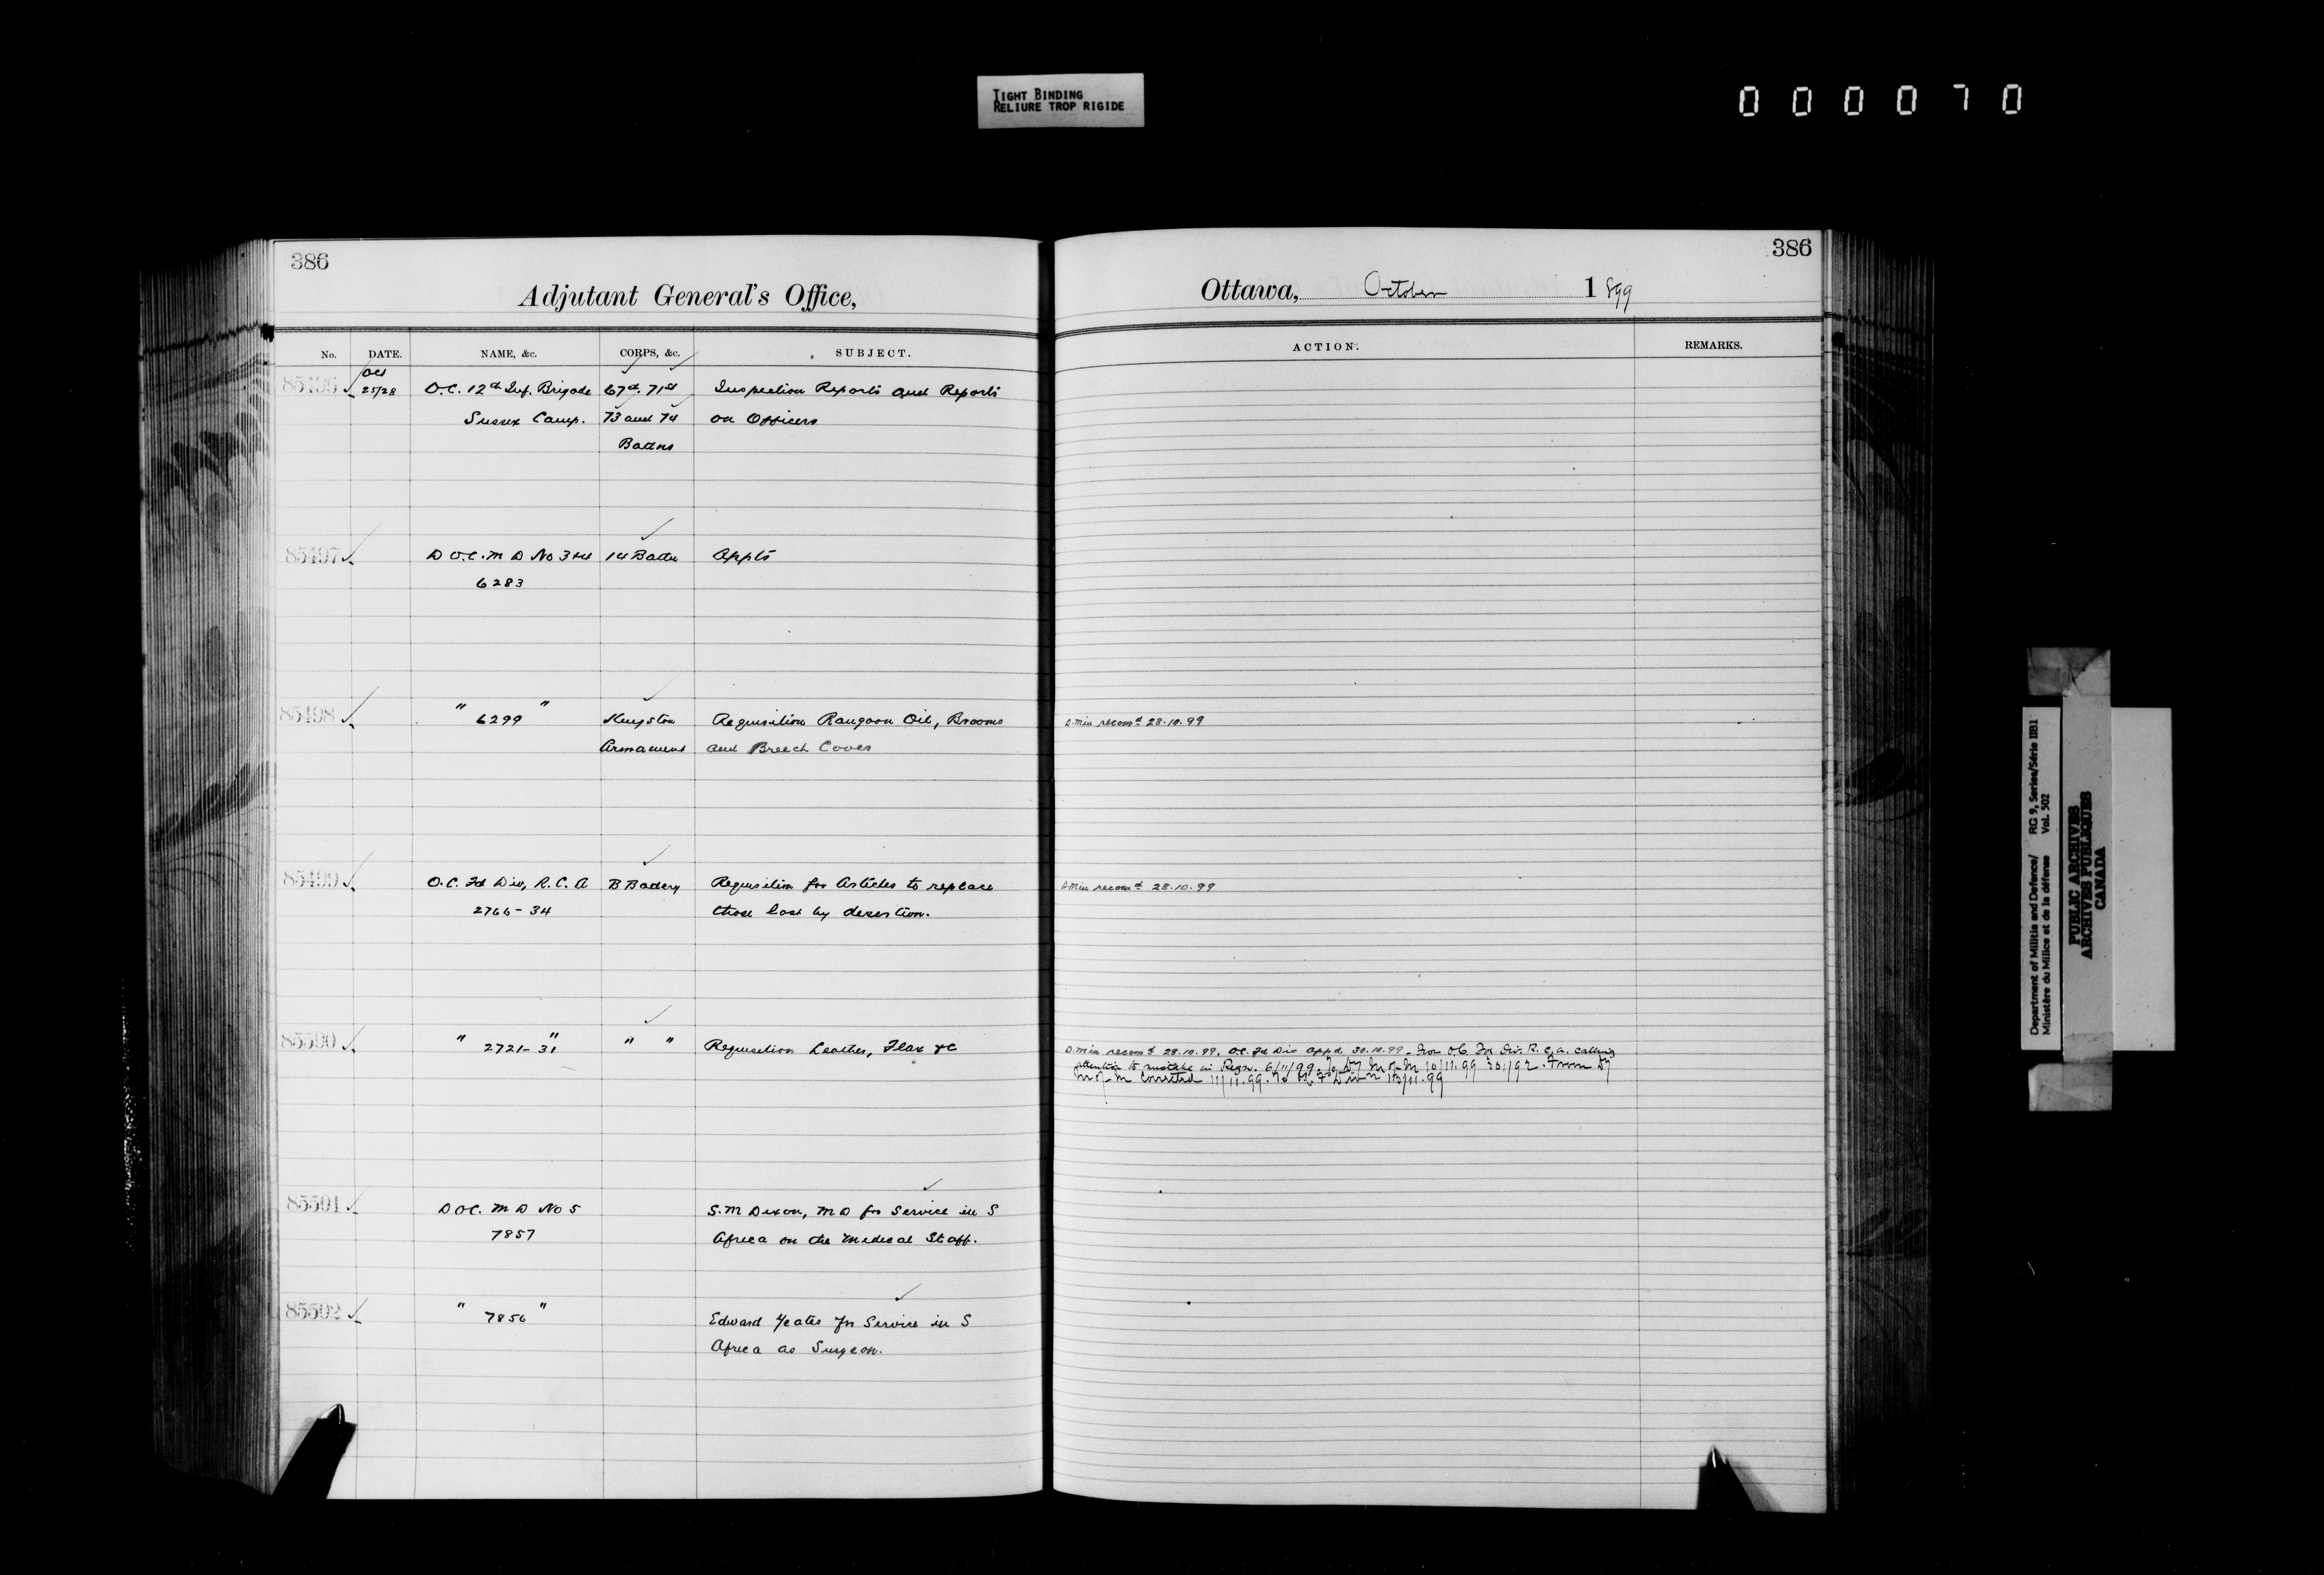 TIGHT BINDING
RELIURE TROP RIGIDE
000070
386
Adjutant General's Office,
No. DATE. NAME, &c. CORPS, &c. SUBJECT.
85496 Oct 25/28 O.C. 12th Inf. Brigade 67th. 71st Inspection Reports and Reports
Sussex Camp. 73 and 74 on Officers
Battns
85497 D O.C. M D No 3+4 14 Battn Appts
6283
85498 " 6299 " Kingston Requisition Rangoon Oil, Brooms
Armament and Breech Cover
85499 O.C. Fd Div, R.C.A B Battery Requisition for Articles to replace
2766-34 those lost by desertion.
85500 " 2721-31 " " " Requisition Leather, Flax &c
85501 D O C. M D No 5 S. M Dixon, M D for Service in S
7857 Africa on the Medical Staff.
85502 " 7856 " Edward Yeates for Service in S
Africa as Surgeon.
386
Ottawa, October 1899
ACTION. REMARKS.
D. Min recomd 28.10.99
D. Min recomd 28.10.99
D. Min recomd 28.10.99. O.C. Fd Div appd 30.10.99. From O.C. Fd. Div. R.C.A. calling
attention to mistake in Reqn. 6/11/99. To D/ M of M 10/11.99 30192. From D/
M of M corrected 11/11.99. To 13/11.99
Department of Militia and Defence/ RG 9, Series/Série IIB1
Ministère du Milice et de la défense Vol. 502
PUBLIC ARCHIVES
ARCHIVES PUBLIQUES
CANADA